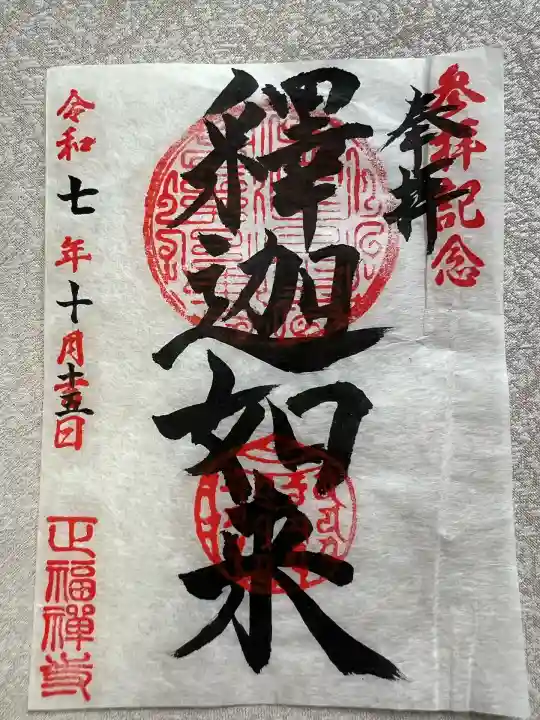 参拝記念
奉拝
釋迦如来
令和七年十月十五日
正福禅寺